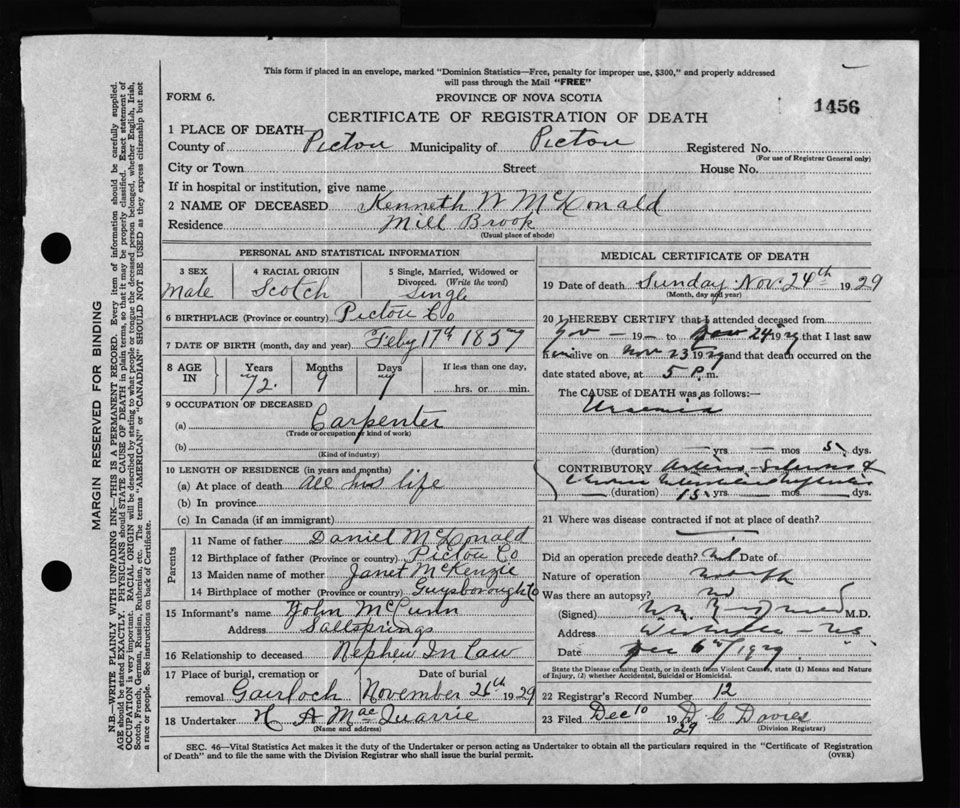 This form if placed in an envelope, marked "Dominion Statistics—Free, penalty for improper use, $300," and properly addressed
will pass through the Mail "FREE"
FORM 6.
PROVINCE OF NOVA SCOTIA
1456
CERTIFICATE OF REGISTRATION OF DEATH
1 PLACE OF DEATH—
County of Pictou Municipality of Pictou Registered No.
(For use of Registrar General only)
City or Town Street House No.
If in hospital or institution, give name
2 NAME OF DECEASED Kenneth W McDonald
Residence Mill Brook
(Usual place of abode)
PERSONAL AND STATISTICAL INFORMATION
3 SEX Male
4 RACIAL ORIGIN Scotch
5 Single, Married, Widowed or Divorced. (Write the word) Single
6 BIRTHPLACE (Province or country) Pictou Co
7 DATE OF BIRTH (month, day and year) Feby 17th 1857
8 AGE IN Years 72 Months 9 Days 7 If less than one day, hrs. or min.
9 OCCUPATION OF DECEASED
(a) Carpenter
(Trade or occupation or kind of work)
(b)
(Kind of industry)
10 LENGTH OF RESIDENCE (in years and months)
(a) At place of death all his life
(b) In province
(c) In Canada (if an immigrant)
Parents
11 Name of father Daniel McDonald
12 Birthplace of father (Province or country) Pictou Co
13 Maiden name of mother Janet McKenzie
14 Birthplace of mother (Province or country) Guysborough Co
15 Informant's name John
Address Saltsprings
16 Relationship to deceased Nephew In Law
17 Place of burial, cremation or removal Gairloch
Date of burial November 26th 1929
18 Undertaker H A MacQuarrie
(Name and address)
MEDICAL CERTIFICATE OF DEATH
19 Date of death Sunday Nov. 24th 1929
(Month, day and year)
20 I HEREBY CERTIFY that I attended deceased from
Nov — 19— to Nov 24 1929 that I last saw
him alive on Nov 23 1929 and that death occurred on the
date stated above, at 5 P.m.
The CAUSE of DEATH was as follows:—
Uraemia
(duration) — yrs. — mos. 5 dys.
CONTRIBUTORY Arterio-Sclerosis &
Chronic Interstitial Nephritis
(duration) 15 yrs — mos — dys.
21 Where was disease contracted if not at place of death?
Did an operation precede death? Date of
Nature of operation
Was there an autopsy? no
(Signed) M.D.
Address
Date Dec 6th/1929
State the Disease causing Death, or in death from Violent Causes, state (1) Means and Nature
of Injury, (2) whether Accidental, Suicidal or Homicidal.
22 Registrar's Record Number 12
23 Filed Dec 10 1929 D C Davies
(Division Registrar)
SEC. 46—Vital Statistics Act makes it the duty of the Undertaker or person acting as Undertaker to obtain all the particulars required in the "Certificate of Registration
of Death" and to file the same with the Division Registrar who shall issue the burial permit.
(OVER)
MARGIN RESERVED FOR BINDING
N.B.—WRITE PLAINLY WITH UNFADING INK—THIS IS A PERMANENT RECORD. Every item of information should be carefully supplied.
AGE should be stated EXACTLY. PHYSICIANS should STATE CAUSE OF DEATH in plain terms, so that it may be properly classified. Exact statement of
OCCUPATION is very important. RACIAL ORIGIN will be described by stating to what people or tongue the deceased person belonged, whether English, Irish,
Scotch, French, German, Russian, Ruthenian, etc. The terms "AMERICAN" or "CANADIAN" SHOULD NOT BE USED as they express citizenship but not
a race or people. See instructions on back of Certificate.